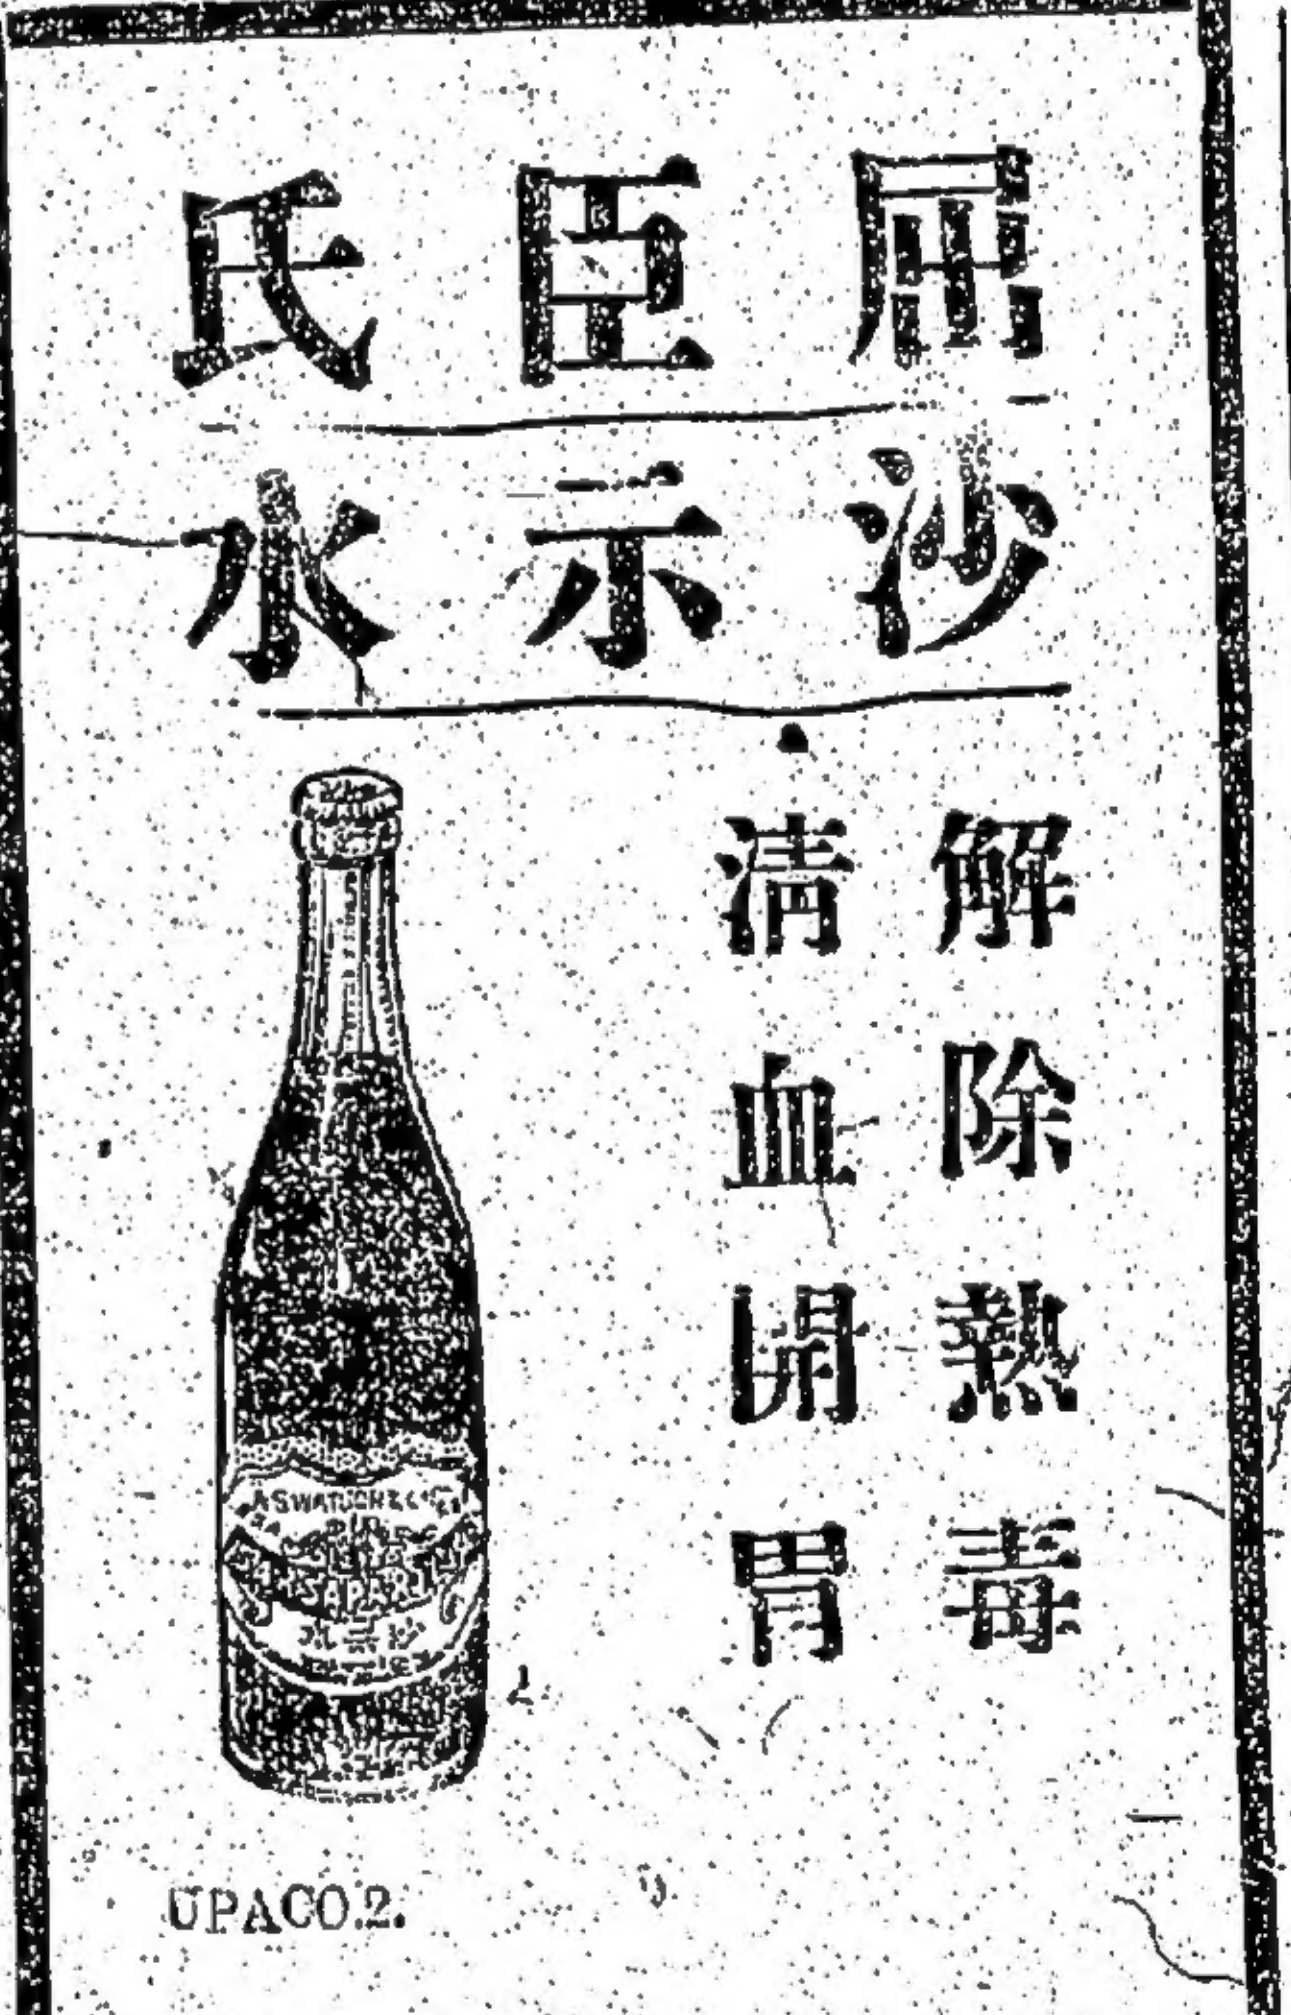 屈臣氏
沙示水
解除熱毒
清血開胃
A.S. WATSON & CO
SARSAPARILLA
水示沙
UPACO.2.